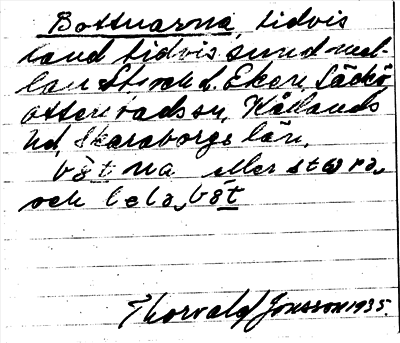 Bottnarna, tidvis
land tidvis sund mel-
lan St. och L. Eken, Säckö
Otterstadssn, Kållands
hd, Skaraborgs län.
bötna eller stora
och lela böt
Thorvald Jonsson 1935.